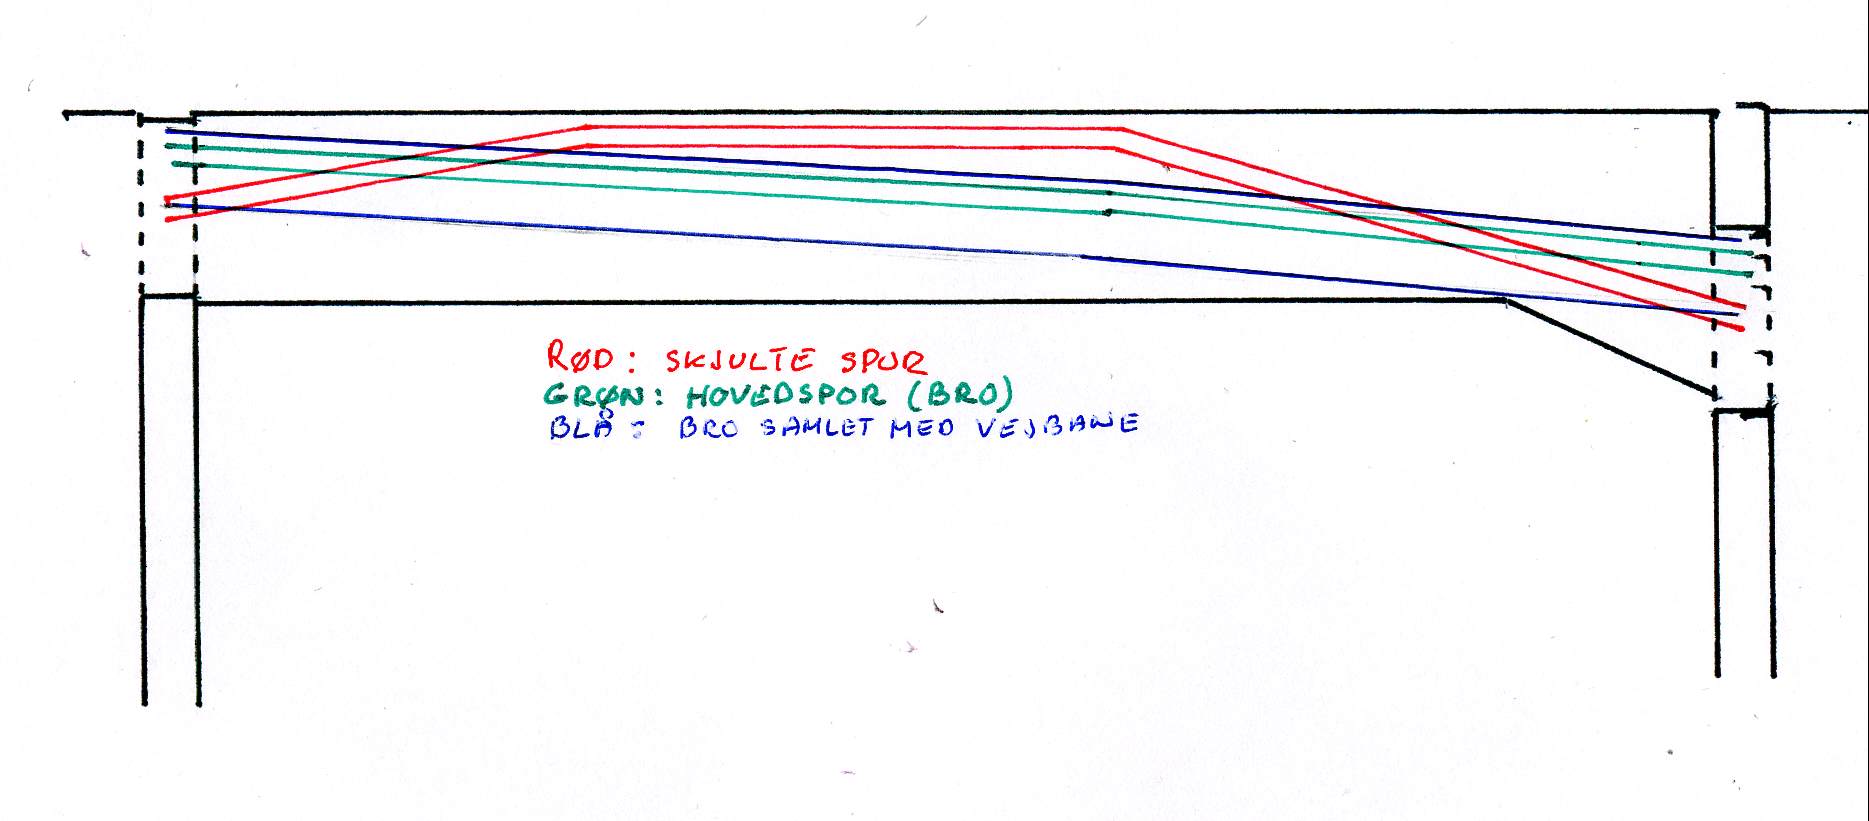 RØD: SKJULTE SPUR
GRØN: HOVEDSPOR (BRO)
BLÅ: BRO SAMLET MED VEJBANE